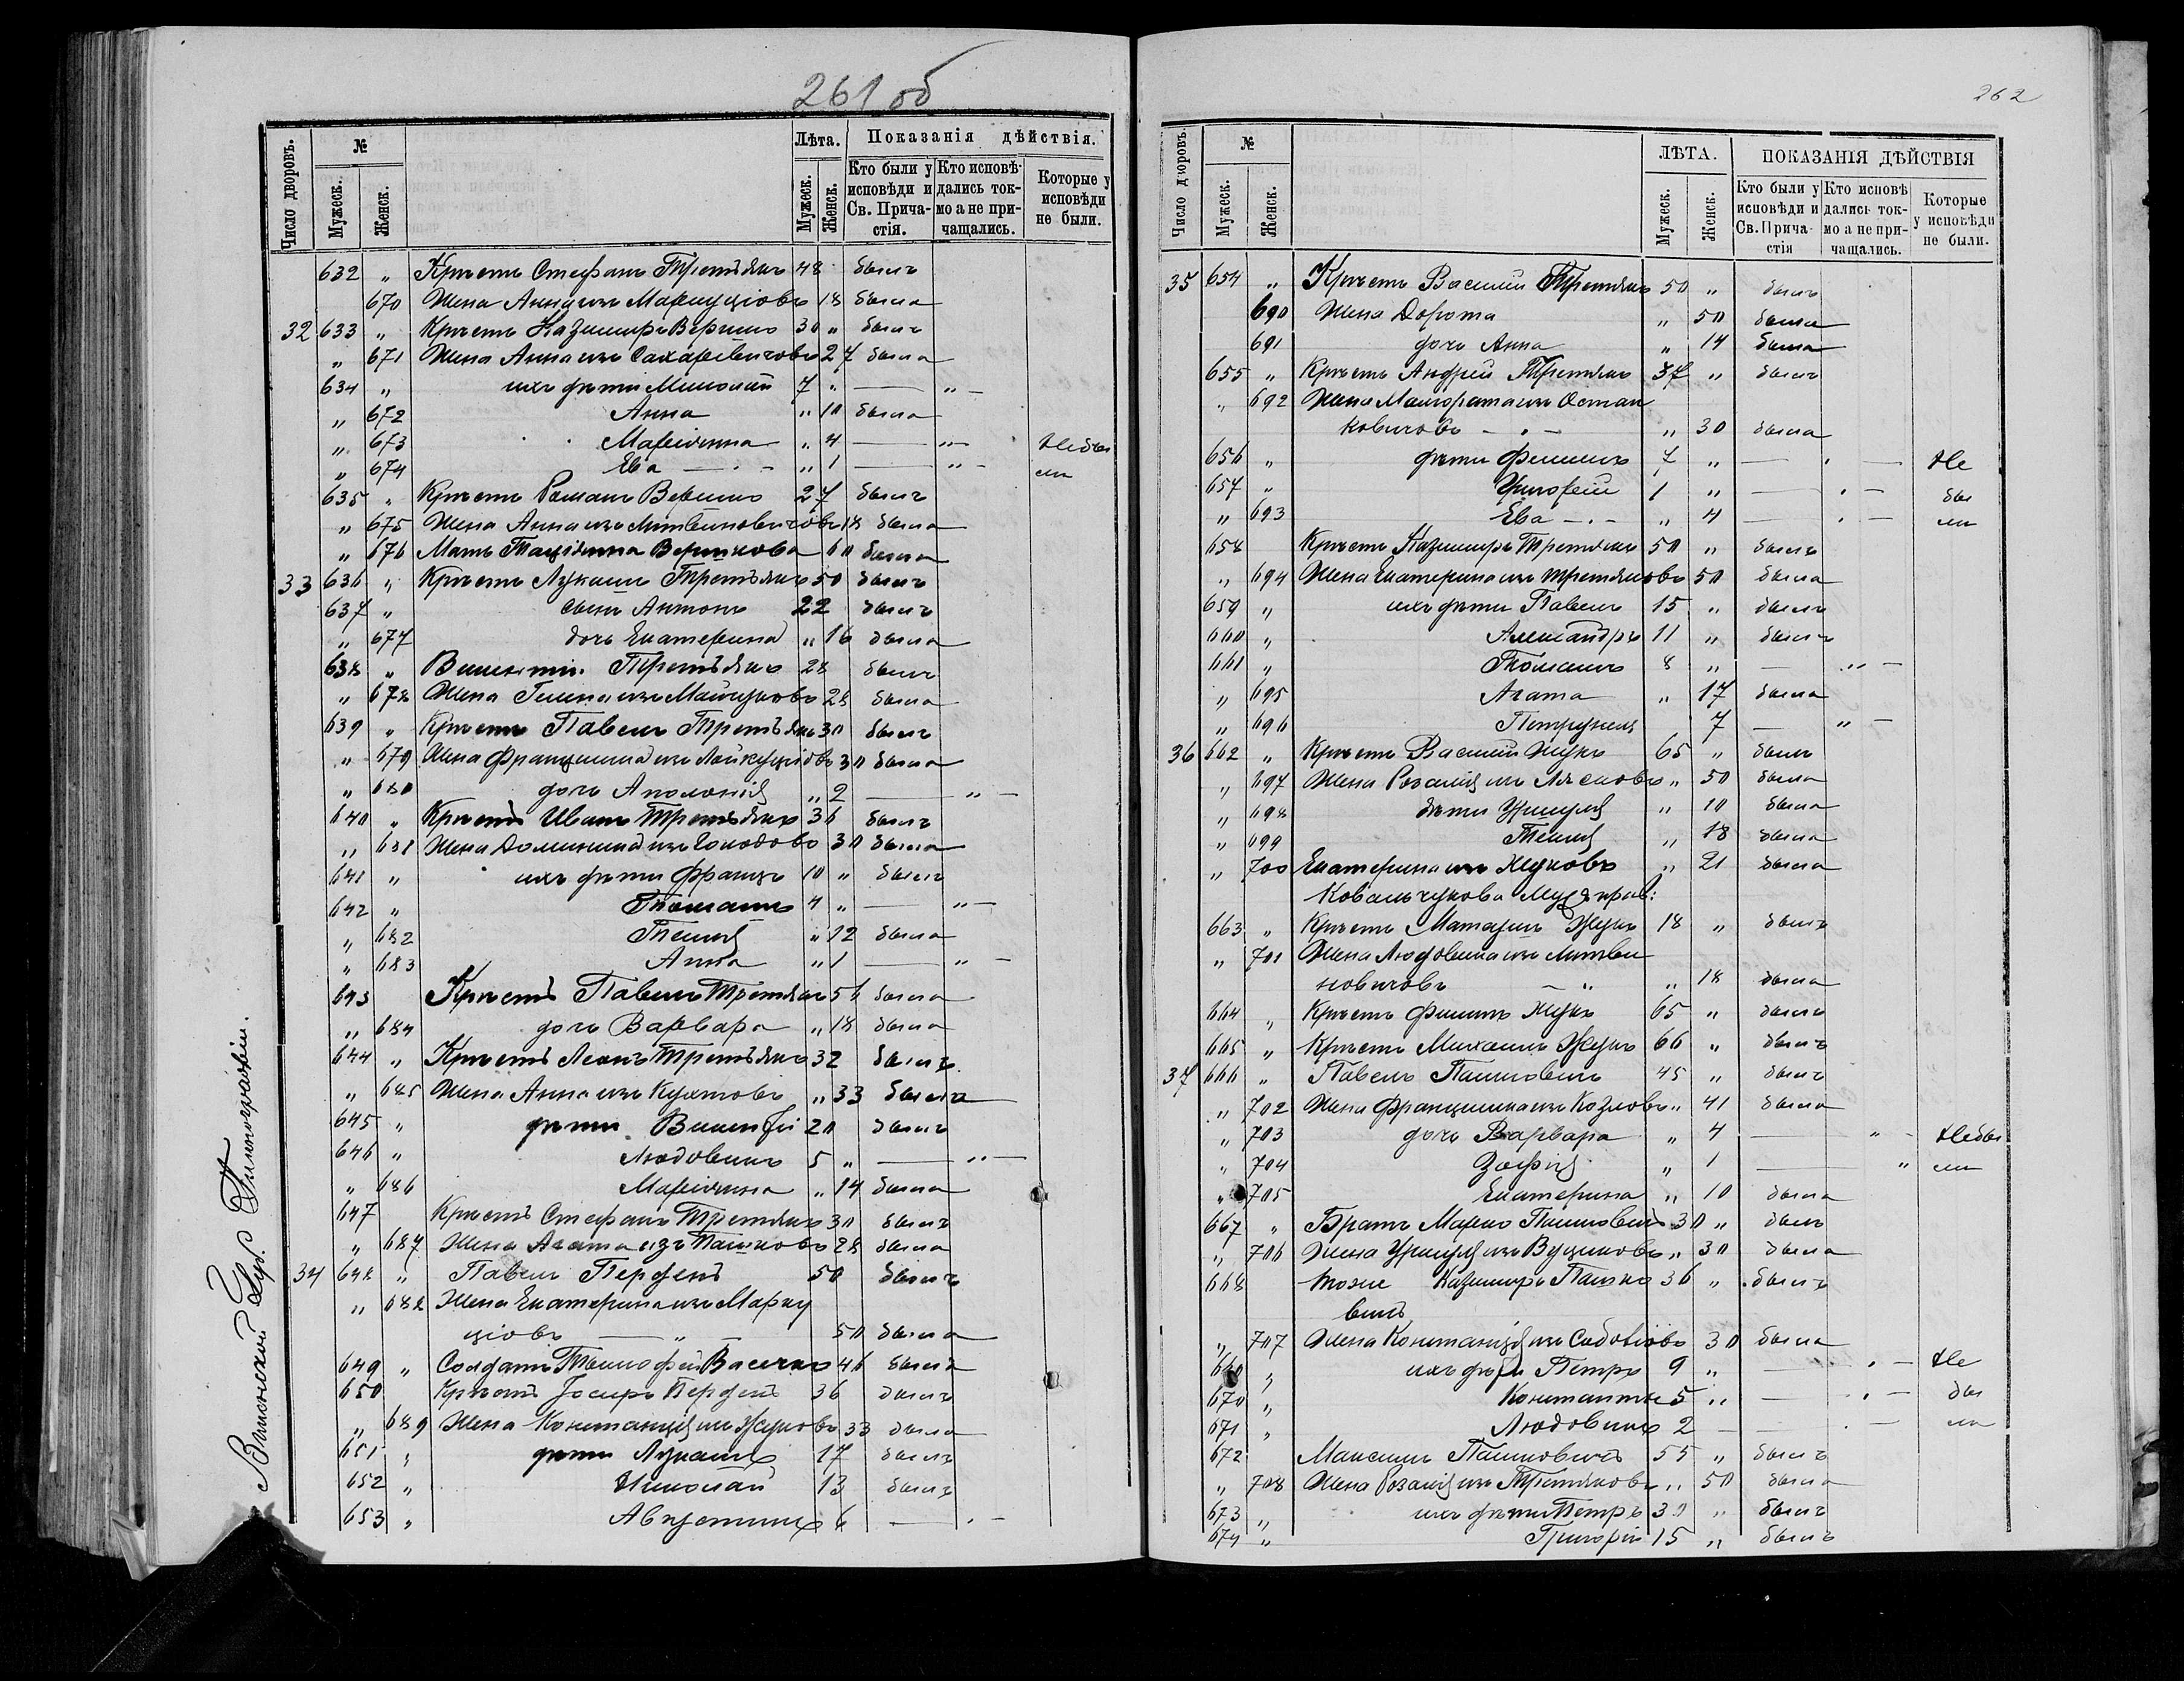 261 об
Число дворовъ. № Лѣта. Показанія дѣйствія.
Мужеск. Женск. Мужеск. Женск. Кто были у исповѣди и Св. Прича-стія. Кто исповѣ-дались ток-мо а не при-чащались. Которые у исповѣди не были.
632 „ Крест Стефанъ Третьякъ 48 былъ
670 Жена Анна изъ Маркуціовъ 18 была
32 633 „ Крест Казимиръ Вершко 30 „ былъ
„ 671 Жена Анна изъ Сахаревичовъ 27 была
634 „ ихъ дѣти Николай 7 „ — „ —
„ 672 Анна „ 10 была
„ 673 Маріянна „ 4 — „ — Небы
„ 674 Ева — „ 1 — „ — ли
635 „ Крест Романъ Вершко 27 былъ
„ 675 Жена Анна изъ Литвиновичовъ 18 была
„ 676 Мать Таціянна Вершкова 60 была
33 636 „ Крест Лукашъ Третьякъ 50 былъ
637 „ сынъ Антонъ 22 былъ
„ 677 дочь Екатерина „ 16 была
638 „ Викентій Третьякъ 28 былъ
„ 678 Жена Гелена изъ 28 была
639 „ Крест Павелъ Третьякъ 30 былъ
„ 679 Жена Францишка изъ 30 была
„ 680 дочь Аполонія „ 2 — „ —
640 „ Крест Иванъ Третьякъ 36 былъ
„ 681 Жена Доминика изъ Голодовъ 30 была
641 „ ихъ дѣти Францъ 10 „ былъ
642 „ Томашъ 4 „ — „ —
„ 682 Текля „ 12 была
„ 683 Анна „ 1 — „ —
643 Крест Павелъ Третьякъ 56 была
„ 684 дочь Варвара „ 18 была
644 „ Крест Леонъ Третьякъ 32 былъ
„ 685 Жена Анна изъ Кухтовъ „ 33 была
645 „ дѣти Викентій 20 былъ
646 „ Людовикъ 5 „ — „ —
„ 686 Маріянна „ 14 была
647 Крест Стефанъ Третьякъ 30 былъ
„ 687 Жена Агата изъ Пашковъ 28 была
34 648 „ Павелъ Перденъ 50 былъ
„ 688 Жена Екатерина изъ Марку
ціовъ — „ — 50 была
649 „ Солдатъ Тимофей Васечко 46 былъ
650 Крест Іосифъ Перденъ 36 былъ
„ 689 Жена Констанція изъ Жуковъ 33 была
651 „ дѣти Лукашъ 17 былъ
652 „ Николай 13 былъ
653 „ Августинъ 6 — „ —
Виленской Губ. Типографіи.
262
Число дворовъ. № ЛѢТА. ПОКАЗАНІЯ ДѢЙСТВІЯ
Мужеск. Женск. Мужеск. Женск. Кто были у исповѣди и Св. Прича-стія Кто исповѣ дались ток-мо а не при-чащались. Которые у исповѣди не были.
35 654 „ Крест Василій Третьякъ 50 „ былъ
690 Жена Дорота „ 50 была
691 дочь Анна „ 14 была
655 „ Крест Андрей Третьякъ 37 „ былъ
„ 692 Жена Малгората изъ Остап
ковичовъ — „ — „ 30 была
656 „ дѣти Филипъ 7 „ — „ — Не
657 „ Григорій 1 „ — „ — бы
„ 693 Ева — „ 4 — „ — ли
658 Крест Казимиръ Третьякъ 50 „ былъ
„ 694 Жена Екатерина изъ Третьяковъ 50 была
659 „ ихъ дѣти Павелъ 15 „ былъ
660 „ Александръ 11 „ былъ
661 „ Томашъ 8 „ — „ —
„ 695 Агата „ 17 была
„ 696 Петрунеля 7 — „ —
36 662 „ Крест Василій Жукъ 65 „ былъ
„ 697 Жена Розалія изъ Лясковъ „ 50 была
„ 698 дѣти Уршуля „ 10 была
„ 699 Текля „ 18 была
„ 700 Екатерина изъ Жуковъ „ 21 была
Ковальчукова
663 „ Крест Матаушъ Жукъ 18 „ былъ
„ 701 Жена Людовика изъ Литви
новичовъ — „ „ 18 была
664 „ Крест Филипъ Жукъ 65 „ былъ
665 „ Крест Михаилъ Жукъ 66 „ былъ
37 666 „ Павелъ Пашкевичъ 45 „ былъ
„ 702 Жена Францишка изъ Козловъ „ 41 была
„ 703 дочь Варвара „ 4 — „ — Небы
„ 704 Зофія „ 1 — „ ли
„ 705 Екатерина „ 10 была
667 „ Братъ Марко Пашковичъ 30 „ былъ
„ 706 Жена Уршуля изъ „ 30 была
668 тоже Казимиръ Пашко 36 „ былъ
вичъ
„ 707 Жена Констанція изъ 30 была
669 „ ихъ дѣти Петръ 9 „ — „ — Не
670 „ Константинъ 5 „ — „ — бы
671 „ Людовикъ 2 — „ — ли
672 Максимъ Пашковичъ 55 „ былъ
„ 708 Жена Розалія изъ Третьяковъ „ 50 была
673 „ ихъ дѣти Петръ 30 „ былъ
674 „ Григорій 15 „ былъ